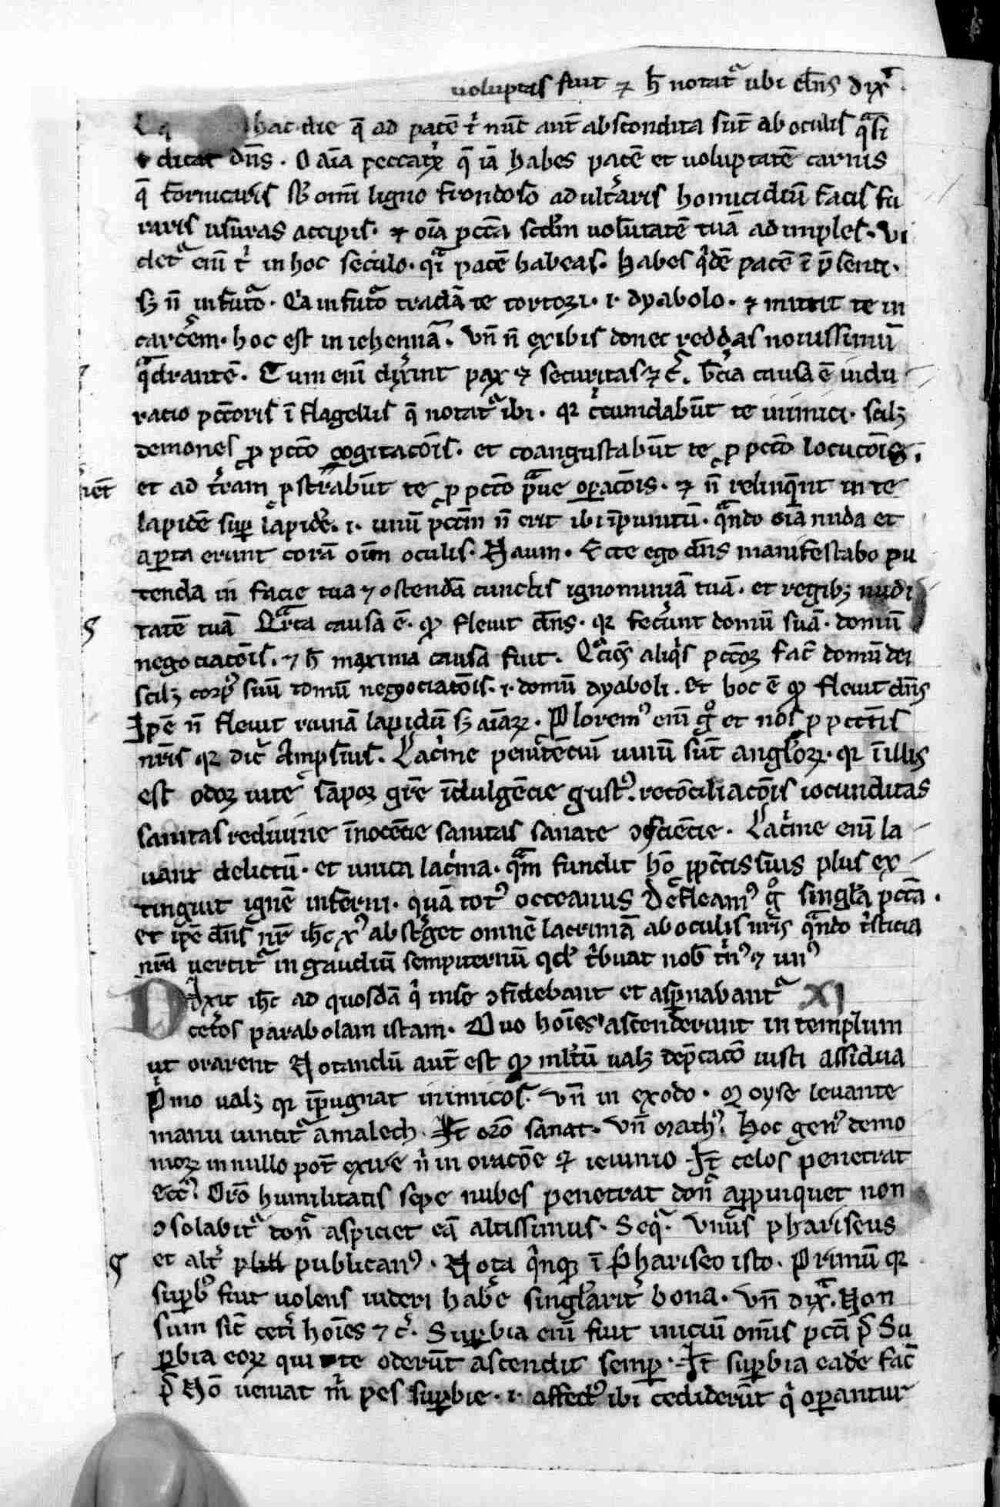 voluptas fuit ⁊ h̄ notatᷣ ubi dn̄s dix͛.
hac die q̄ ad pacē t͛ nūc aut̄ abscondita sūt ab oculis q̄si
dicat dn̄s. O aīa peccat͛x q̄ iā habes pacē et voluptatē carnis
q̄ fornicaris sb̄ omī ligno frondoso adult͛aris homicidiū facis fu
raris usuras accipis. ⁊ oīa pcc̄a scdm̄ volūtatē tuā adimples. Vi
detᷣ eni t͛ in hoc seculo. qᷓ pacē habeas. Habes qͥdē pacē ī p̄senti.
sꝫ n̄ in futᷣo. Qᷓa in futᷣo tradā te tortoꝛi .i. dyabolo. ⁊ mittit te in
carc͛em. hoc est in iehennā. Vn̄ n̄ exibis donec reddas nouissimū
qᷓdrantē. Cum eni dix͛int pax ⁊ securitas ⁊ c̄. t͛cia causa ē indu
ratio pcc̄oris ī flagellis q̄ notatᷣ ibi. qꝛ c͛cundabūt te inimici. scilꝫ
demones ꝓ pcc̄o cogitacōis. et coangustabūt te ꝓ pcc̄o locucōis.
et ad t͛ram pstrabūt te ꝓ pcc̄o p̄ue oꝑacōis. ⁊ n̄ relinqͫnt in te
lapidē suꝑ lapidē. i. unū pcc̄m n̄ erit ibi īpunitū. qᷓndo oīa nuda et
aꝑta erunt corā oīm oculis. Naum. Ecce ego dn̄s manifestabo pu
tenda in facie tua ⁊ ostendā cunctis ignominiā tuā. et regibꝫ nudi
tatē tuā Qᷓrta causa ē. qͦ fleuit dn̄s. qꝛ fec͛unt domū suā. domū
negociacōis. ⁊ h̄ maxima causa fuit. Qͦciēs aliqͥs pcc̄oꝝ fac̄ domū dei
scilꝫ corpꝰ suū domū negociatōis .i. domū dyaboli. et hoc ē qͦ fleuit dn̄s
Ip̄e n̄ fleuit ruinā lapidū sꝫ aīaꝝ. Ploremꝰ eni gͦ et nos ꝓ pccīs
nr̄is qꝛ dic̄ Ampsīus. Lac͛me penitēciū uinū sūt angl̄oꝝ. qꝛ ī illis
est odoꝛ uite sapoꝛ gr̄e īdulgēcie gustꝰ. recōciliacōis iocunditas
sanitas rediuiue īnocēcie sanitas sanate ↄsciēcie. Lac͛me eni la
uant delictū. et unica lac͛ma. qᷓm fundit hō ꝓ pccīs suis plus ex
tinguit ignē inferni. quā totꝰ occeanus Defleamꝰ gͦ singl̄a pcc̄a.
et ip̄e dn̄s nr̄ ih̄c xᷤ abst͛get omnē lacrimā ab oculis nr̄is qᷓndo t͛sticia
nr̄a uertitᷣ in gaudiū sempiternū qd̄ t͛buat nob̄ t͛nꝰ ⁊ unꝰ
Dixit ih̄c ad quosdā qͥ in se ↄfidebant et asꝑnabantᷣ XI
cet͛os parabolam istam. Duo hoīes ascenderunt in templum
ut orarent Notandū aut̄ est qͦ mltū ualꝫ dep̄cacō iusti assidua
Pͥmo ualꝫ qꝛ īpugnat inimicos. Vn̄ in exodo. Moyse leuante
manu uincitᷣ amalech. It̄ orō sanat. Vn̄ mathꝰ. Hoc genꝰ demo
nioꝝ in nullo pot̄ exire n̄ in oracōe ⁊ ieiunio. It̄ celos penetrat
ecc̄ꝰ. Orō humilitatis sepe nubes penetrat donͨ appinquet non
ↄsolabitᷣ donͨ aspiciet eā altissimus. Seqᷣ. Vnus phariseus
et alt͛ publicanꝰ. Nota qͥnqꝫ ī phariseo isto. Primū qꝛ
suꝑbꝰ fuit uolens uideri hab͛e singl̄arit͛ bona. Vn̄ dix͛. Non
sum sic̄ cet͛i hoīes ⁊ c͛. Suꝑbia eni fuit iniciū omīs pcc̄i p̄ Su
ꝑbia eoꝝ qui te oderūt ascendit semꝑ. It̄ suꝑbia cade͛ fac̄
p̄ Nō ueniat m͛ pes suꝑbie .i. affectꝰ ibi ceciderūt qͥ oꝑantur